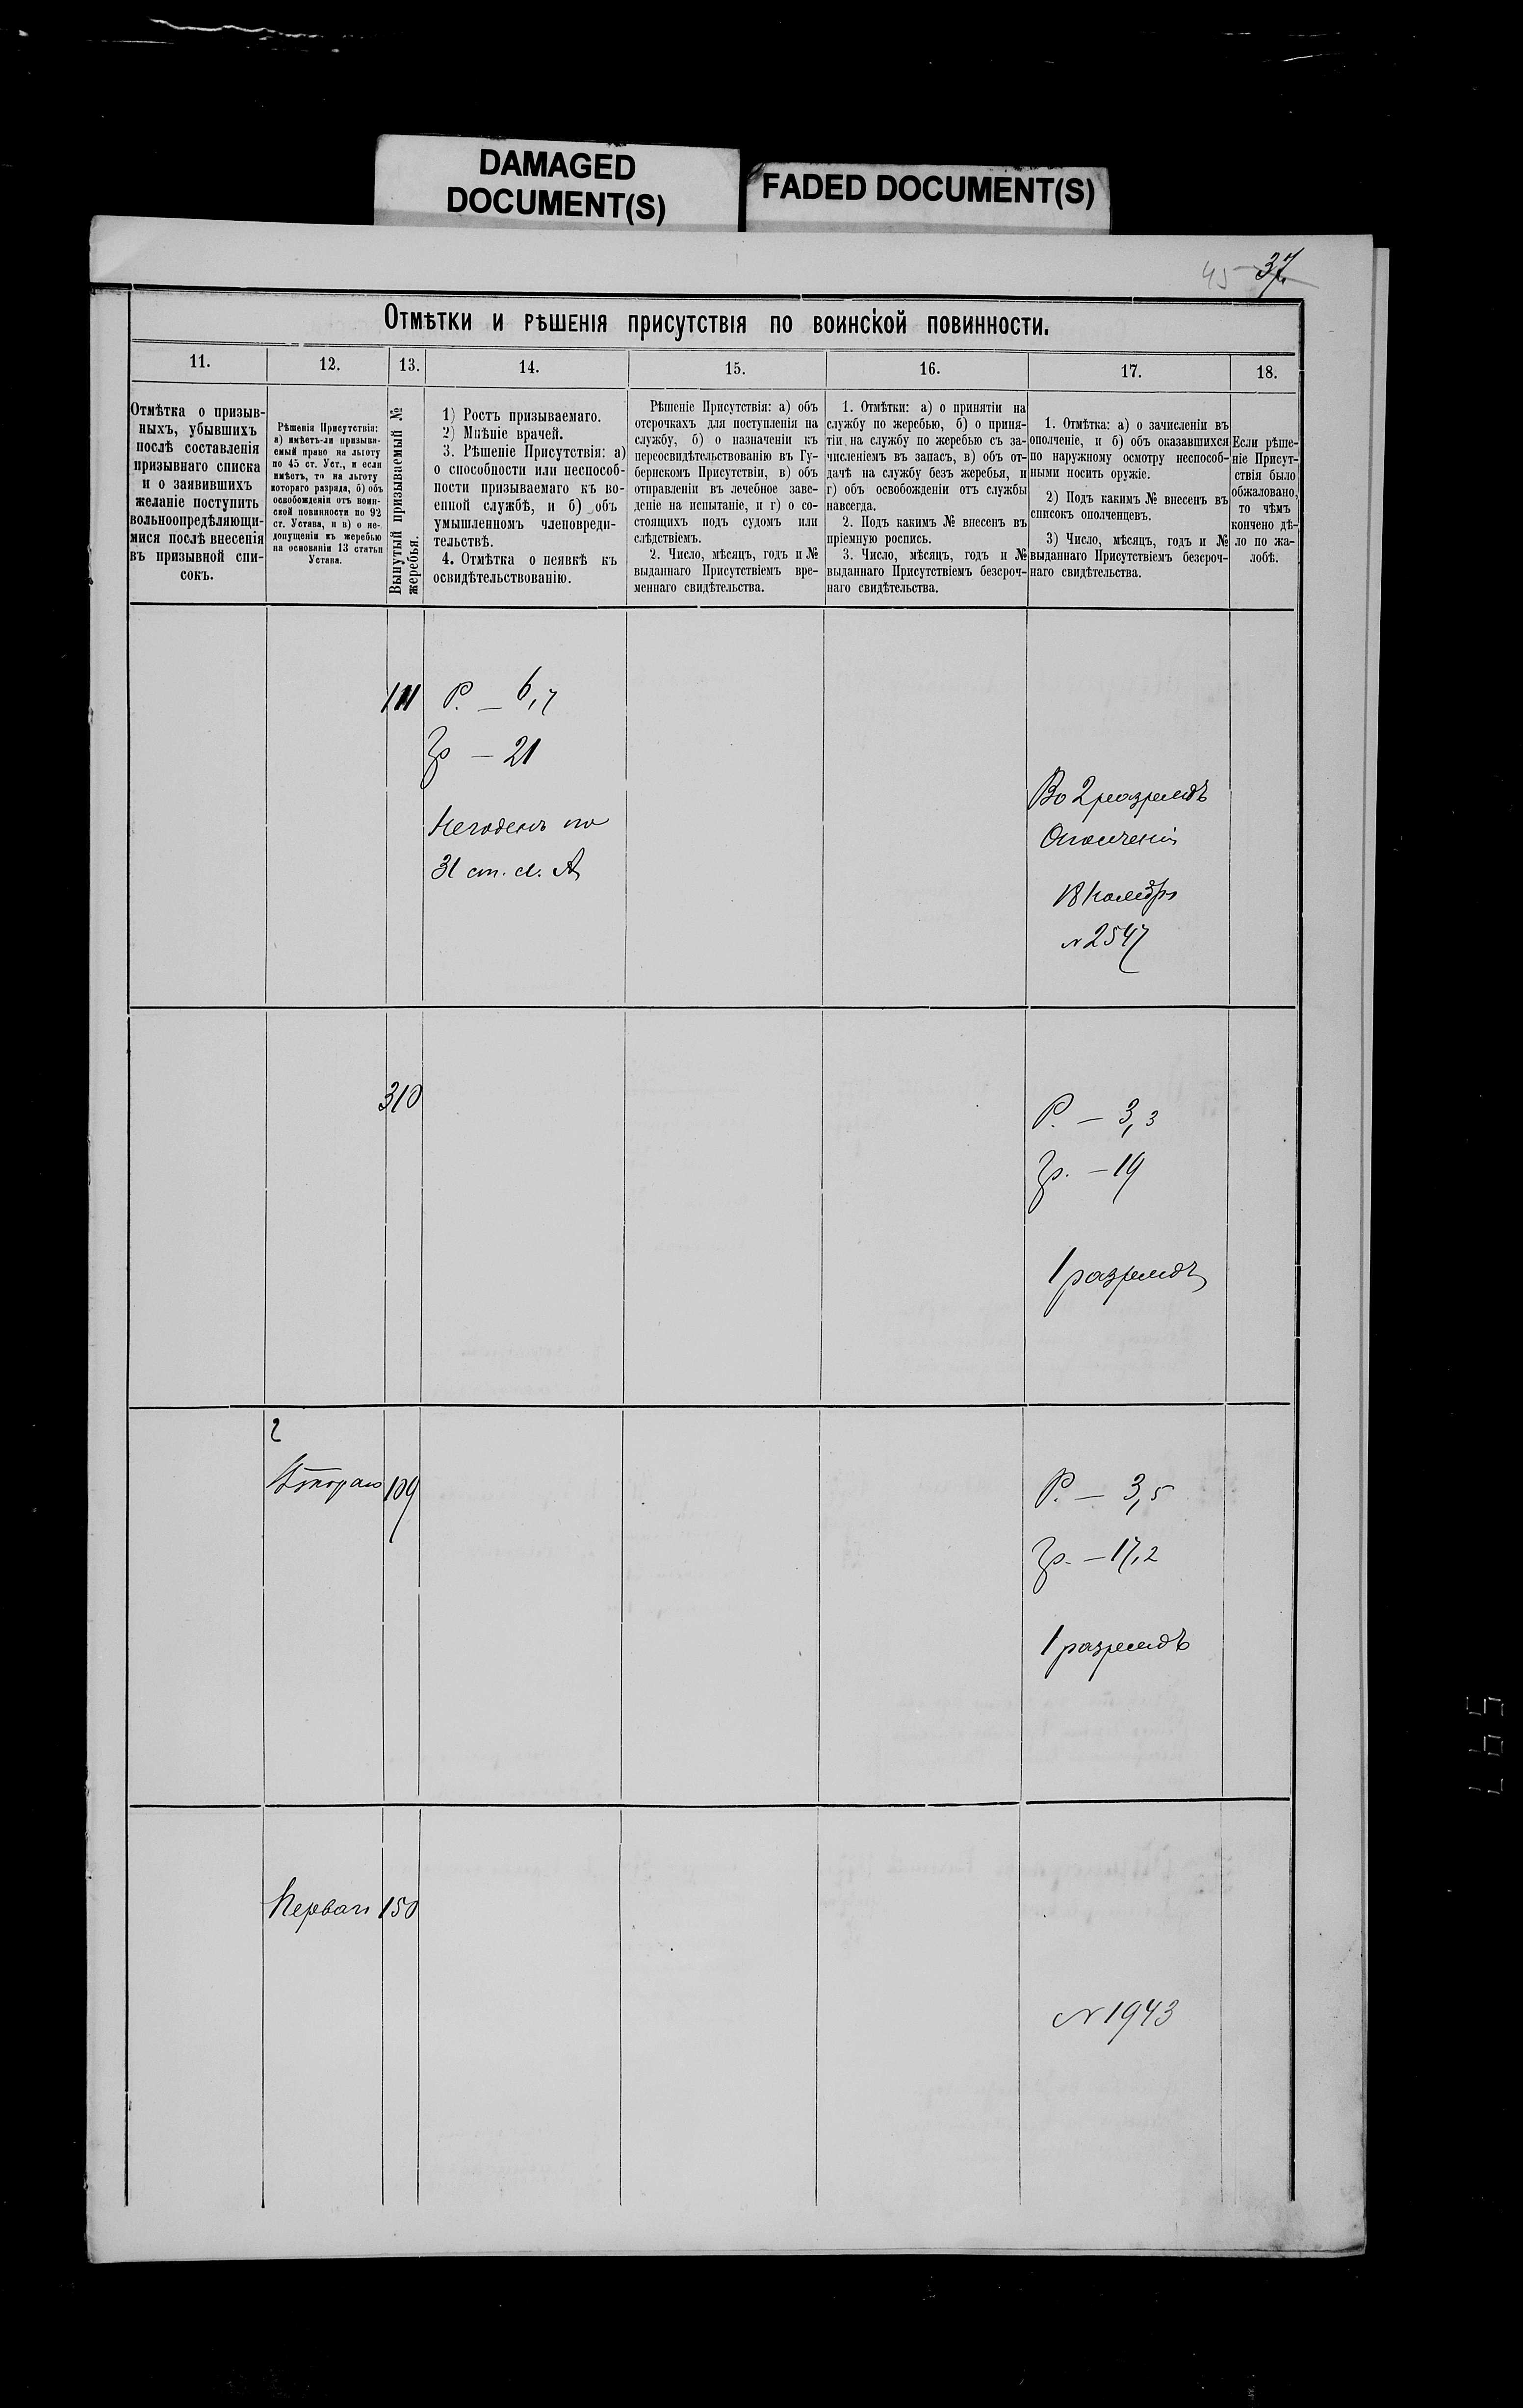 DAMAGED
DOCUMENT(S)
FADED DOCUMENT(S)
45 37.
Отмѣтки и рѣшенія присутствія по воинской повинности.
11.
12.
13.
14.
15.
16.
17.
18.
Отмѣтка о призыв-
ныхъ, убывшихъ
послѣ составленія
призывнаго списка
и о заявившихъ
желаніе поступить
вольноопредѣляющи-
мися послѣ внесенія
въ призывной спи-
сокъ.
Рѣшенія Присутствія:
а) имѣетъ-ли призыва-
емый право на льготу
по 45 ст. Уст., и если
имѣетъ, то на льготу
котораго разряда, б) объ
освобожденіи отъ воин-
ской повинности по 92
ст. Устава, и в) о не-
допущеніи къ жеребью
на основаніи 13 статьи
Устава.
Вынутый призываемый №
жеребья.
1) Ростъ призываемаго.
2) Мнѣніе врачей.
3. Рѣшеніе Присутствія: а)
о способности или неспособ-
ности призываемаго къ во-
енной службѣ, и б) объ
умышленномъ членовреди-
тельствѣ.
4. Отмѣтка о неявкѣ къ
освидѣтельствованію.
Рѣшеніе Присутствія: а) объ
отсрочкахъ для поступленія на
службу, б) о назначеніи къ
переосвидѣтельствованію въ Гу-
бернскомъ Присутствіи, в) объ
отправленіи въ лечебное заве-
деніе на испытаніе, и г) о со-
стоящихъ подъ судомъ или
слѣдствіемъ.
2. Число, мѣсяцъ, годъ и №
выданнаго Присутствіемъ вре-
меннаго свидѣтельства.
1. Отмѣтки: а) о принятіи на
службу по жеребью, б) о приня-
тіи на службу по жеребью съ за-
численіемъ въ запасъ, в) объ от-
дачѣ на службу безъ жеребья, и
г) объ освобожденіи отъ службы
навсегда.
2. Подъ какимъ № внесенъ въ
пріемную роспись.
3. Число, мѣсяцъ, годъ и №
выданнаго Присутствіемъ безсроч-
наго свидѣтельства.
1. Отмѣтка: а) о зачисленіи въ
ополченіе, и б) объ оказавшихся
по наружному осмотру неспособ-
ными носить оружіе.
2) Подъ какимъ № внесенъ въ
списокъ ополченцевъ.
3) Число, мѣсяцъ, годъ и №
выданнаго Присутствіемъ безсроч-
наго свидѣтельства.
Если рѣше-
ніе Присут-
ствія было
обжаловано,
то чѣмъ
кончено дѣ-
ло по жа-
лобѣ.
111
Р. — 6,7
Гр — 21
Негоденъ по
31 ст. л. А
Во 2 разрядъ
Ополченія
18 Ноября
№ 2547
310
Р. — 3,3
Гр. — 19
1 разрядъ
2
Втораго
109
Р. — 3,5
Гр. — 17,2
1 разрядъ
Перваго
150
№ 1943
597